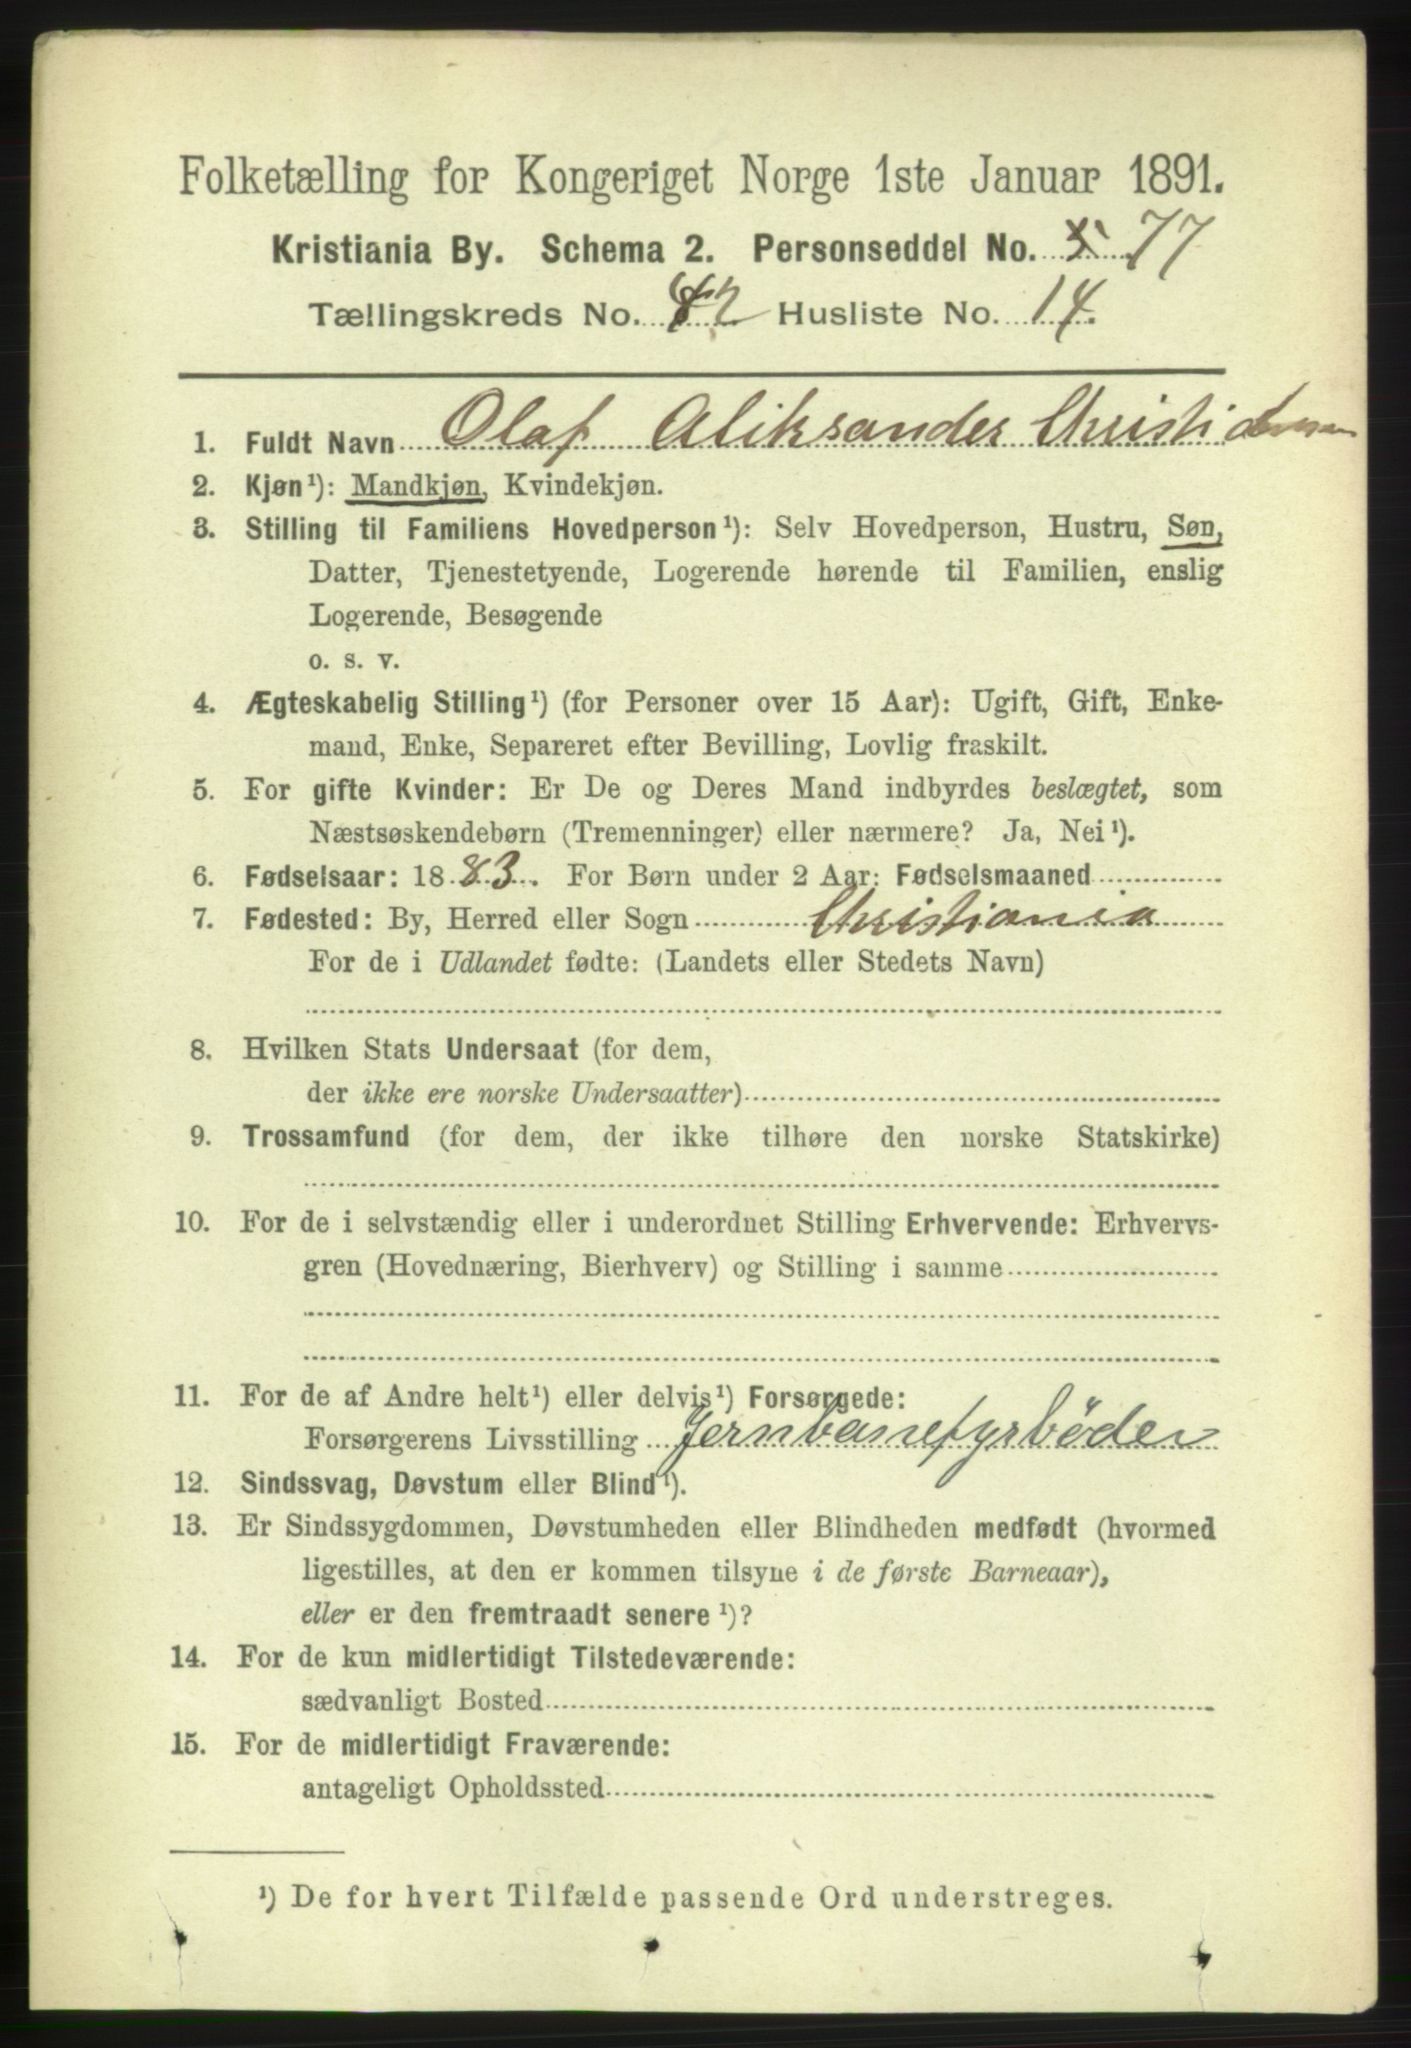 Folketælling for Kongeriget Norge 1ste Januar 1891.
Kristiania By. Schema 2. Personseddel No. 77
Tællingskreds No. 42 Husliste No. 14.
1. Fuldt Navn Olaf Aliksander Christiansen
2. Kjøn¹): Mandkjøn, Kvindekjøn.
3. Stilling til Familiens Hovedperson¹): Selv Hovedperson, Hustru, Søn,
Datter, Tjenestetyende, Logerende hørende til Familien, enslig
Logerende, Besøgende
o. s. v.
4. Ægteskabelig Stilling¹) (for Personer over 15 Aar): Ugift, Gift, Enke-
mand, Enke, Separeret efter Bevilling, Lovlig fraskilt.
5. For gifte Kvinder: Er De og Deres Mand indbyrdes beslægtet, som
Næstsøskendebørn (Tremenninger) eller nærmere? Ja, Nei¹).
6. Fødselsaar: 1883. For Børn under 2 Aar: Fødselsmaaned
7. Fødested: By, Herred eller Sogn Christiania
For de i Udlandet fødte: (Landets eller Stedets Navn)
8. Hvilken Stats Undersaat (for dem,
der ikke ere norske Undersaatter)
9. Trossamfund (for dem, der ikke tilhøre den norske Statskirke)
10. For de i selvstændig eller i underordnet Stilling Erhvervende: Erhvervs-
gren (Hovednæring, Bierhverv) og Stilling i samme
11. For de af Andre helt¹) eller delvis¹) Forsørgede:
Forsørgerens Livsstilling Jernbanefyrböder
12. Sindssvag, Døvstum eller Blind¹).
13. Er Sindssygdommen, Døvstumheden eller Blindheden medfødt (hvormed
ligestilles, at den er kommen tilsyne i de første Barneaar),
eller er den fremtraadt senere¹)?
14. For de kun midlertidigt Tilstedeværende:
sædvanligt Bosted
15. For de midlertidigt Fraværende:
antageligt Opholdssted
¹) De for hvert Tilfælde passende Ord understreges.